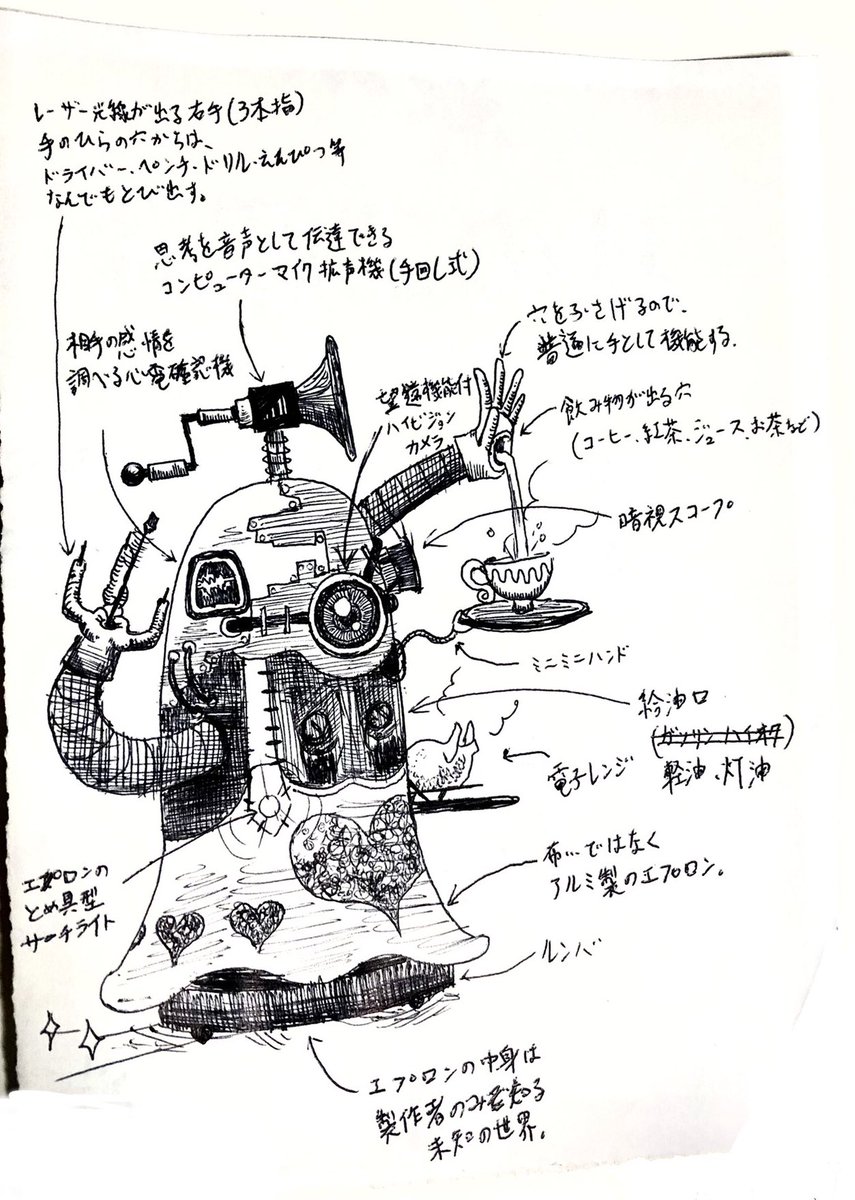 レーザー光線が出る右手(3本指)
手のひらの穴からは、
ドライバー、ペンチ・ドリル・えんぴつ等
なんでもとび出す。
思考を音声として伝達できる
コンピューターマイク拡声機(手回し式)
相手の感情を
調べる心電確認機
望遠機能付
ハイビジョン
カメラ
穴をふさげるので、
普通に手として機能する。
飲み物が出る穴
(コーヒー、紅茶、ジュース、お茶など)
暗視スコープ
ミニミニハンド
給油口
(ガソリンハイオク)
軽油、灯油
電子レンジ
布…ではなく
アルミ製のエプロン。
エプロンの
とめ具型
サーチライト
ルンバ
エプロンの中身は
製作者のみぞ知る
未知の世界。